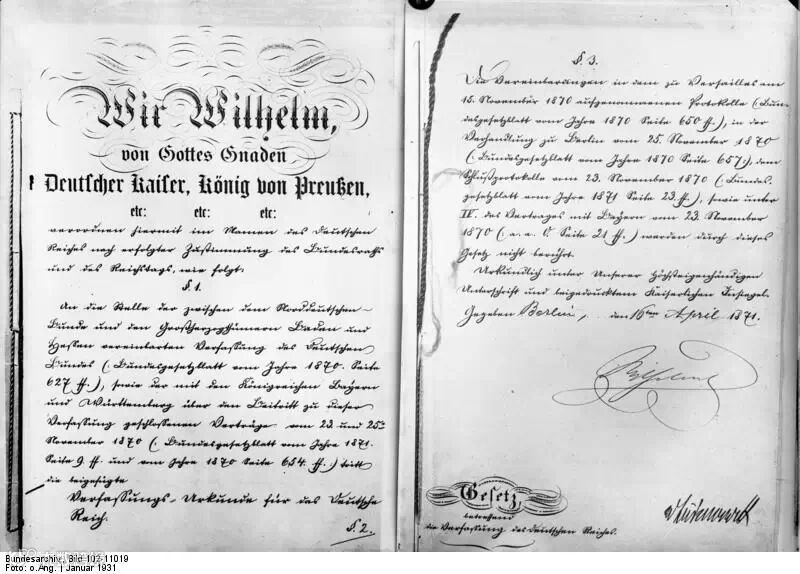 Wir Wilhelm,
von Gottes Gnaden
Deutscher Kaiser, König von Preußen,
etc: etc: etc:
verordnen hiermit im Namen des Deutschen
Reiches nach erfolgter Zustimmung des Bundesraths
und des Reichstags, wie folgt:
§ 1.
An die Stelle der zwischen dem Norddeutschen
Bunde und den Großherzogthümern Baden und
Hessen vereinbarten Verfassung des Deutschen
Bundes (Bundesgesetzblatt vom Jahre 1870. Seite
627 ff.), sowie der mit den Königreichen Bayern
und Württemberg über den Beitritt zu dieser
Verfassung geschlossenen Verträge vom 23 und 25ten
November 1870 (Bundesgesetzblatt vom Jahre 1871.
Seite 9. ff. und vom Jahre 1870 Seite 654. ff.) tritt
die beigefügte
Verfassungs-Urkunde für das Deutsche
Reich.
§ 2.
§ 3.
Die Vereinbarungen in dem zu Versailles am
15. November 1870 aufgenommenen Protokolle (Bun-
desgesetzblatt vom Jahre 1870 Seite 650 ff.), in der
Verhandlung zu Berlin vom 25. November 1870
(Bundesgesetzblatt vom Jahre 1870 Seite 657), dem
Schlußprotokolle vom 23. November 1870 (Bundes-
gesetzblatt vom Jahre 1871 Seite 23 ff.), sowie unter
IV. des Vertrages mit Bayern vom 23. November
1870 (a. a. O Seite 21 ff.) werden durch dieses
Gesetz nicht berührt.
Urkundlich unter Unserer Höchsteigenhändigen
Unterschrift und beigedrucktem Kaiserlichen Insiegel.
Gegeben Berlin, den 16ten April 1871.
Wilhelm
Gesetz,
betreffend
die Verfassung des Deutschen Reiches.
Bundesarchiv, Bild 102-11019
Foto: o.Ang. | Januar 1931